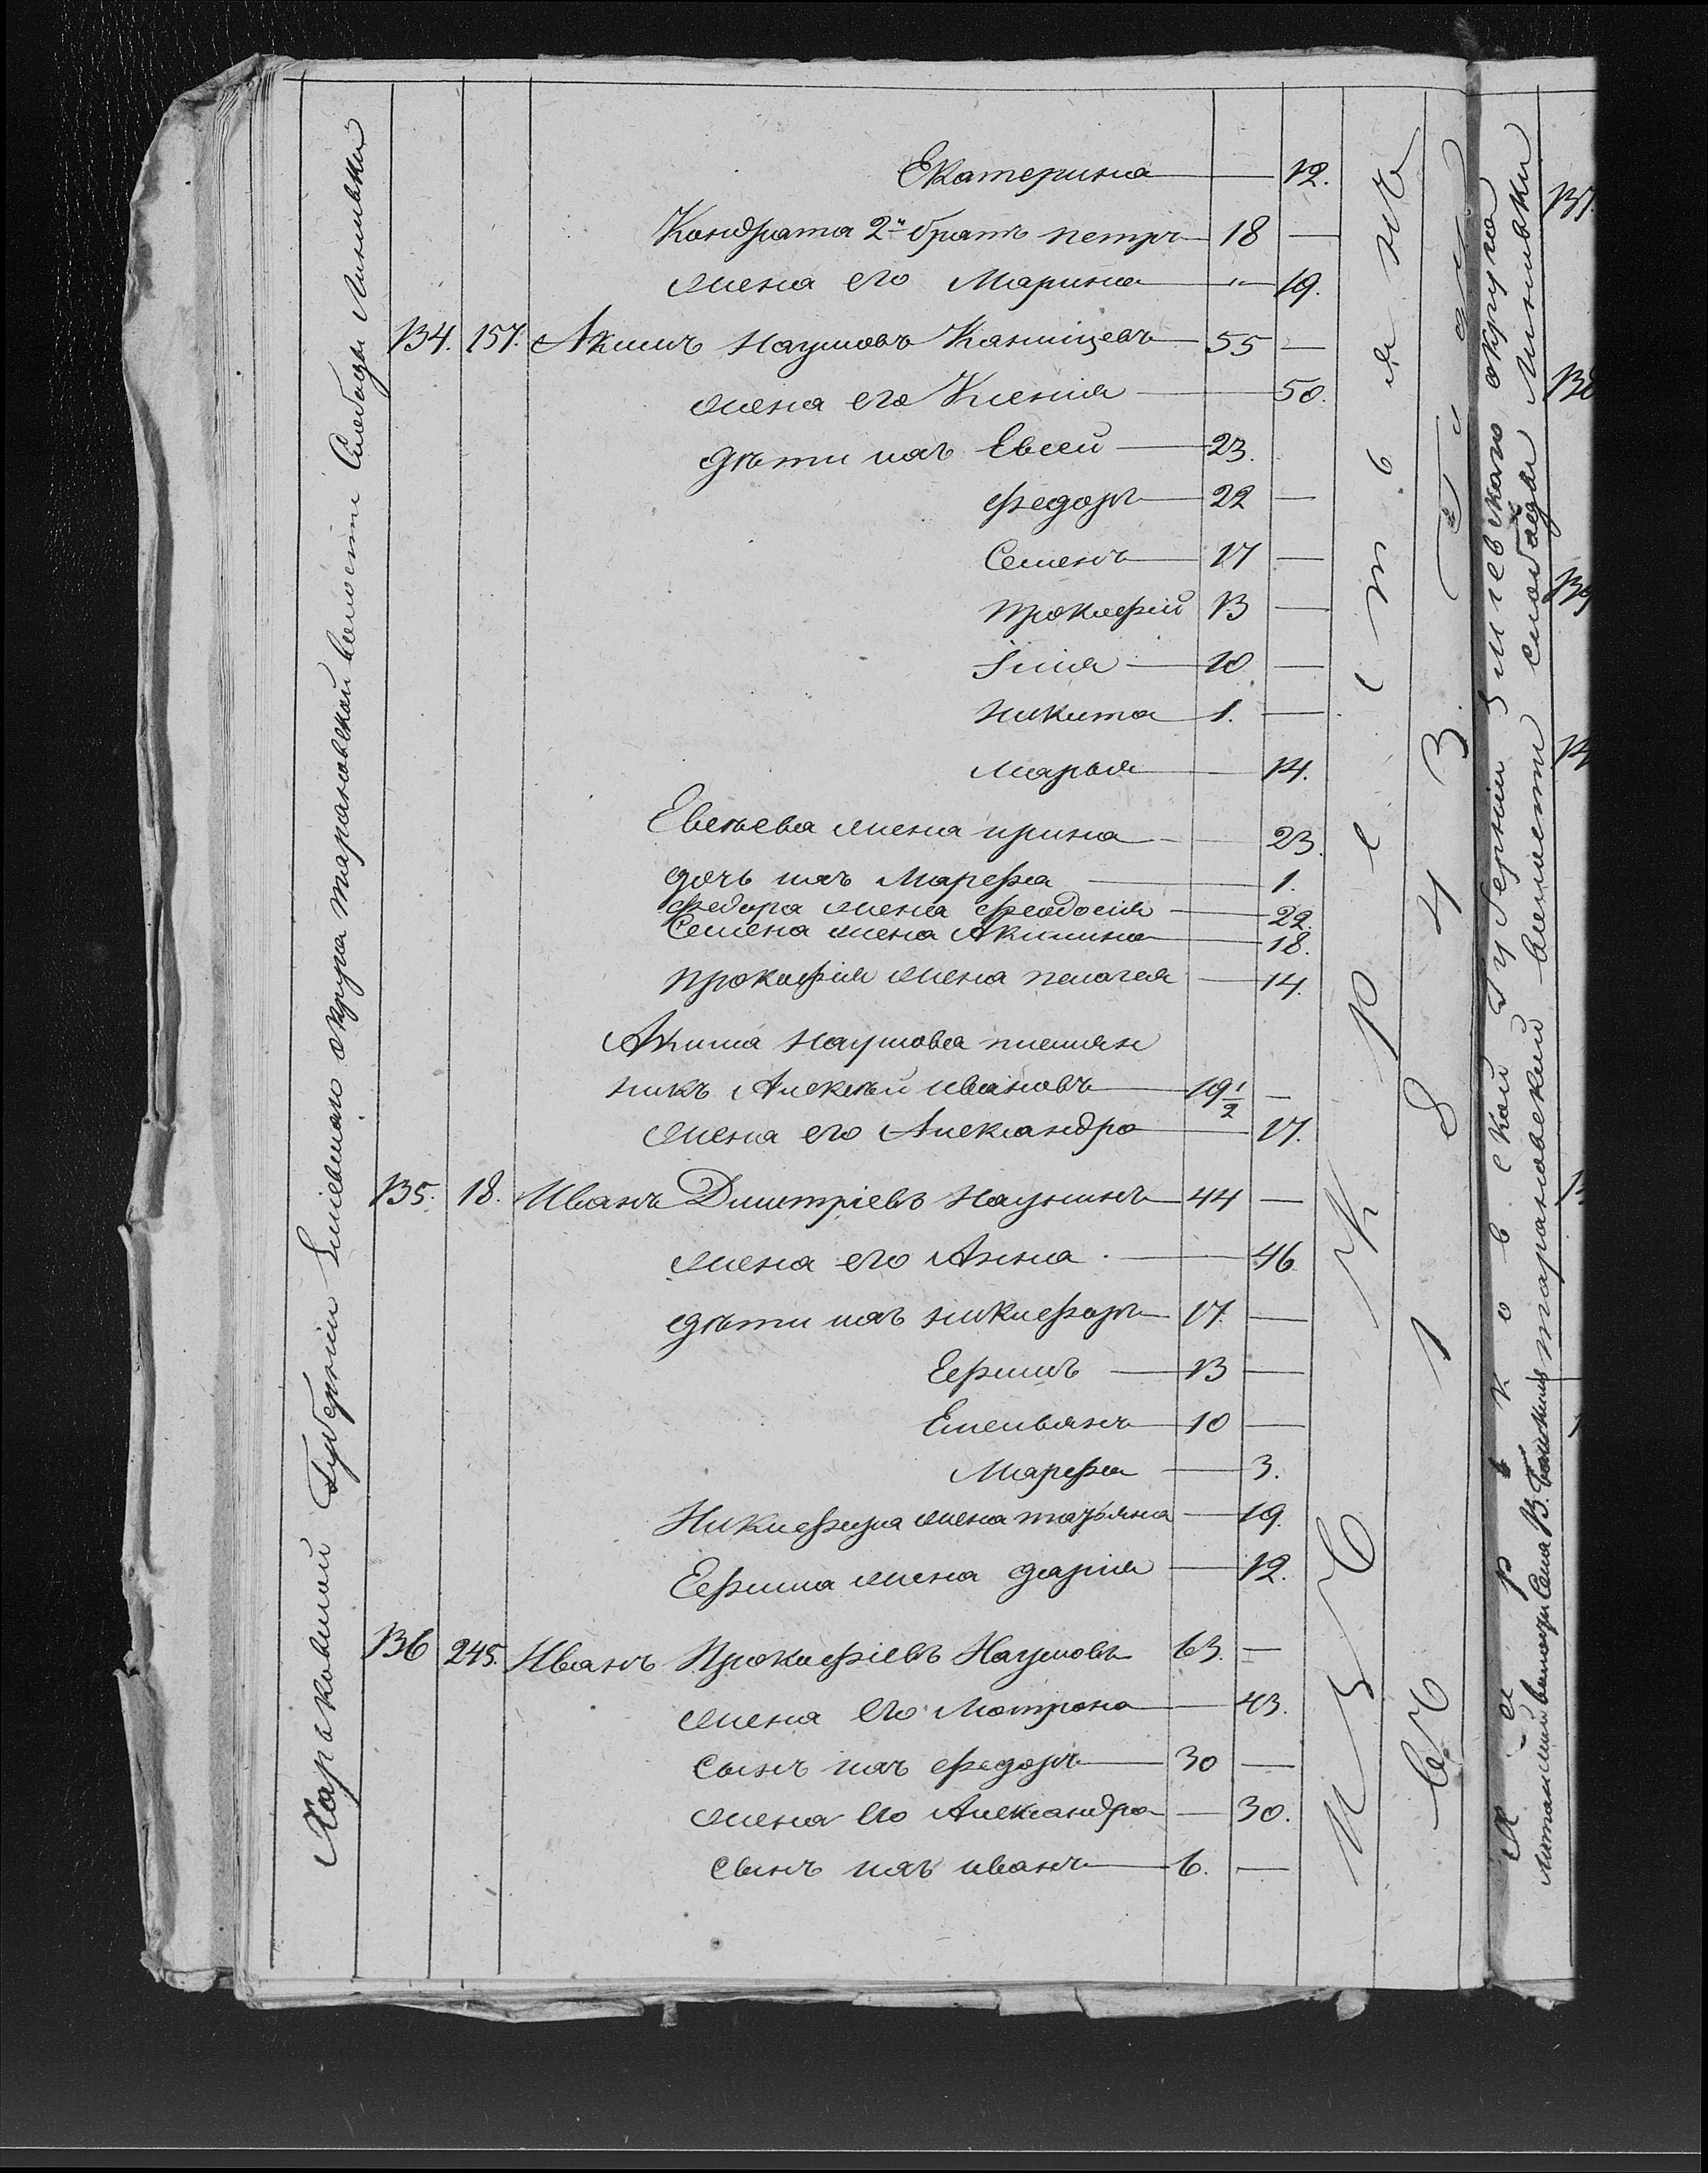 Харьковской Губерніи Зміевскаго округа тарановской волости Слободы Линивки
Екатерина — 12.
Кондрата 2й братъ петръ 18 —
жена его Марина — 19.
134. 157. Акимъ Наумовъ Канищевъ 55 —
жена его Ксенія — 50.
дѣти ихъ Евсей 23.
федоръ 22 —
Семенъ 17 —
прокофій 13 —
Іліа 10 —
никита 1. —
марья — 14.
Евсѣева жена ирина — 23.
дочь ихъ Марефа — 1.
федора жена феодосія — 22.
Семена жена Акилина — 18.
прокофія жена пелагея — 14.
Акима наумова племян
никъ Алексѣй ивановъ 19 1/2 —
жена его Александра — 17.
135. 18. Иванъ Дмитріевъ Наунинъ 44 —
жена его Анна — 46
дѣти ихъ никифоръ 17. —
Ефимъ 13 —
Емельянъ 10 —
Марефа — 3.
Никифора жена татьяна — 19.
Ефима жена дарія — 12.
136 245. Иванъ Прокофіевъ Наумовъ 63. —
жена его Мотрона — 43.
сынъ ихъ федоръ 30 —
жена его Александра — 30.
сынъ ихъ иванъ 6. —
Изъ крестьянъ
въ 1843
Харьковской Губерніи Зміевскаго округа
тарановской волости слободы Линивки
137.
138
139